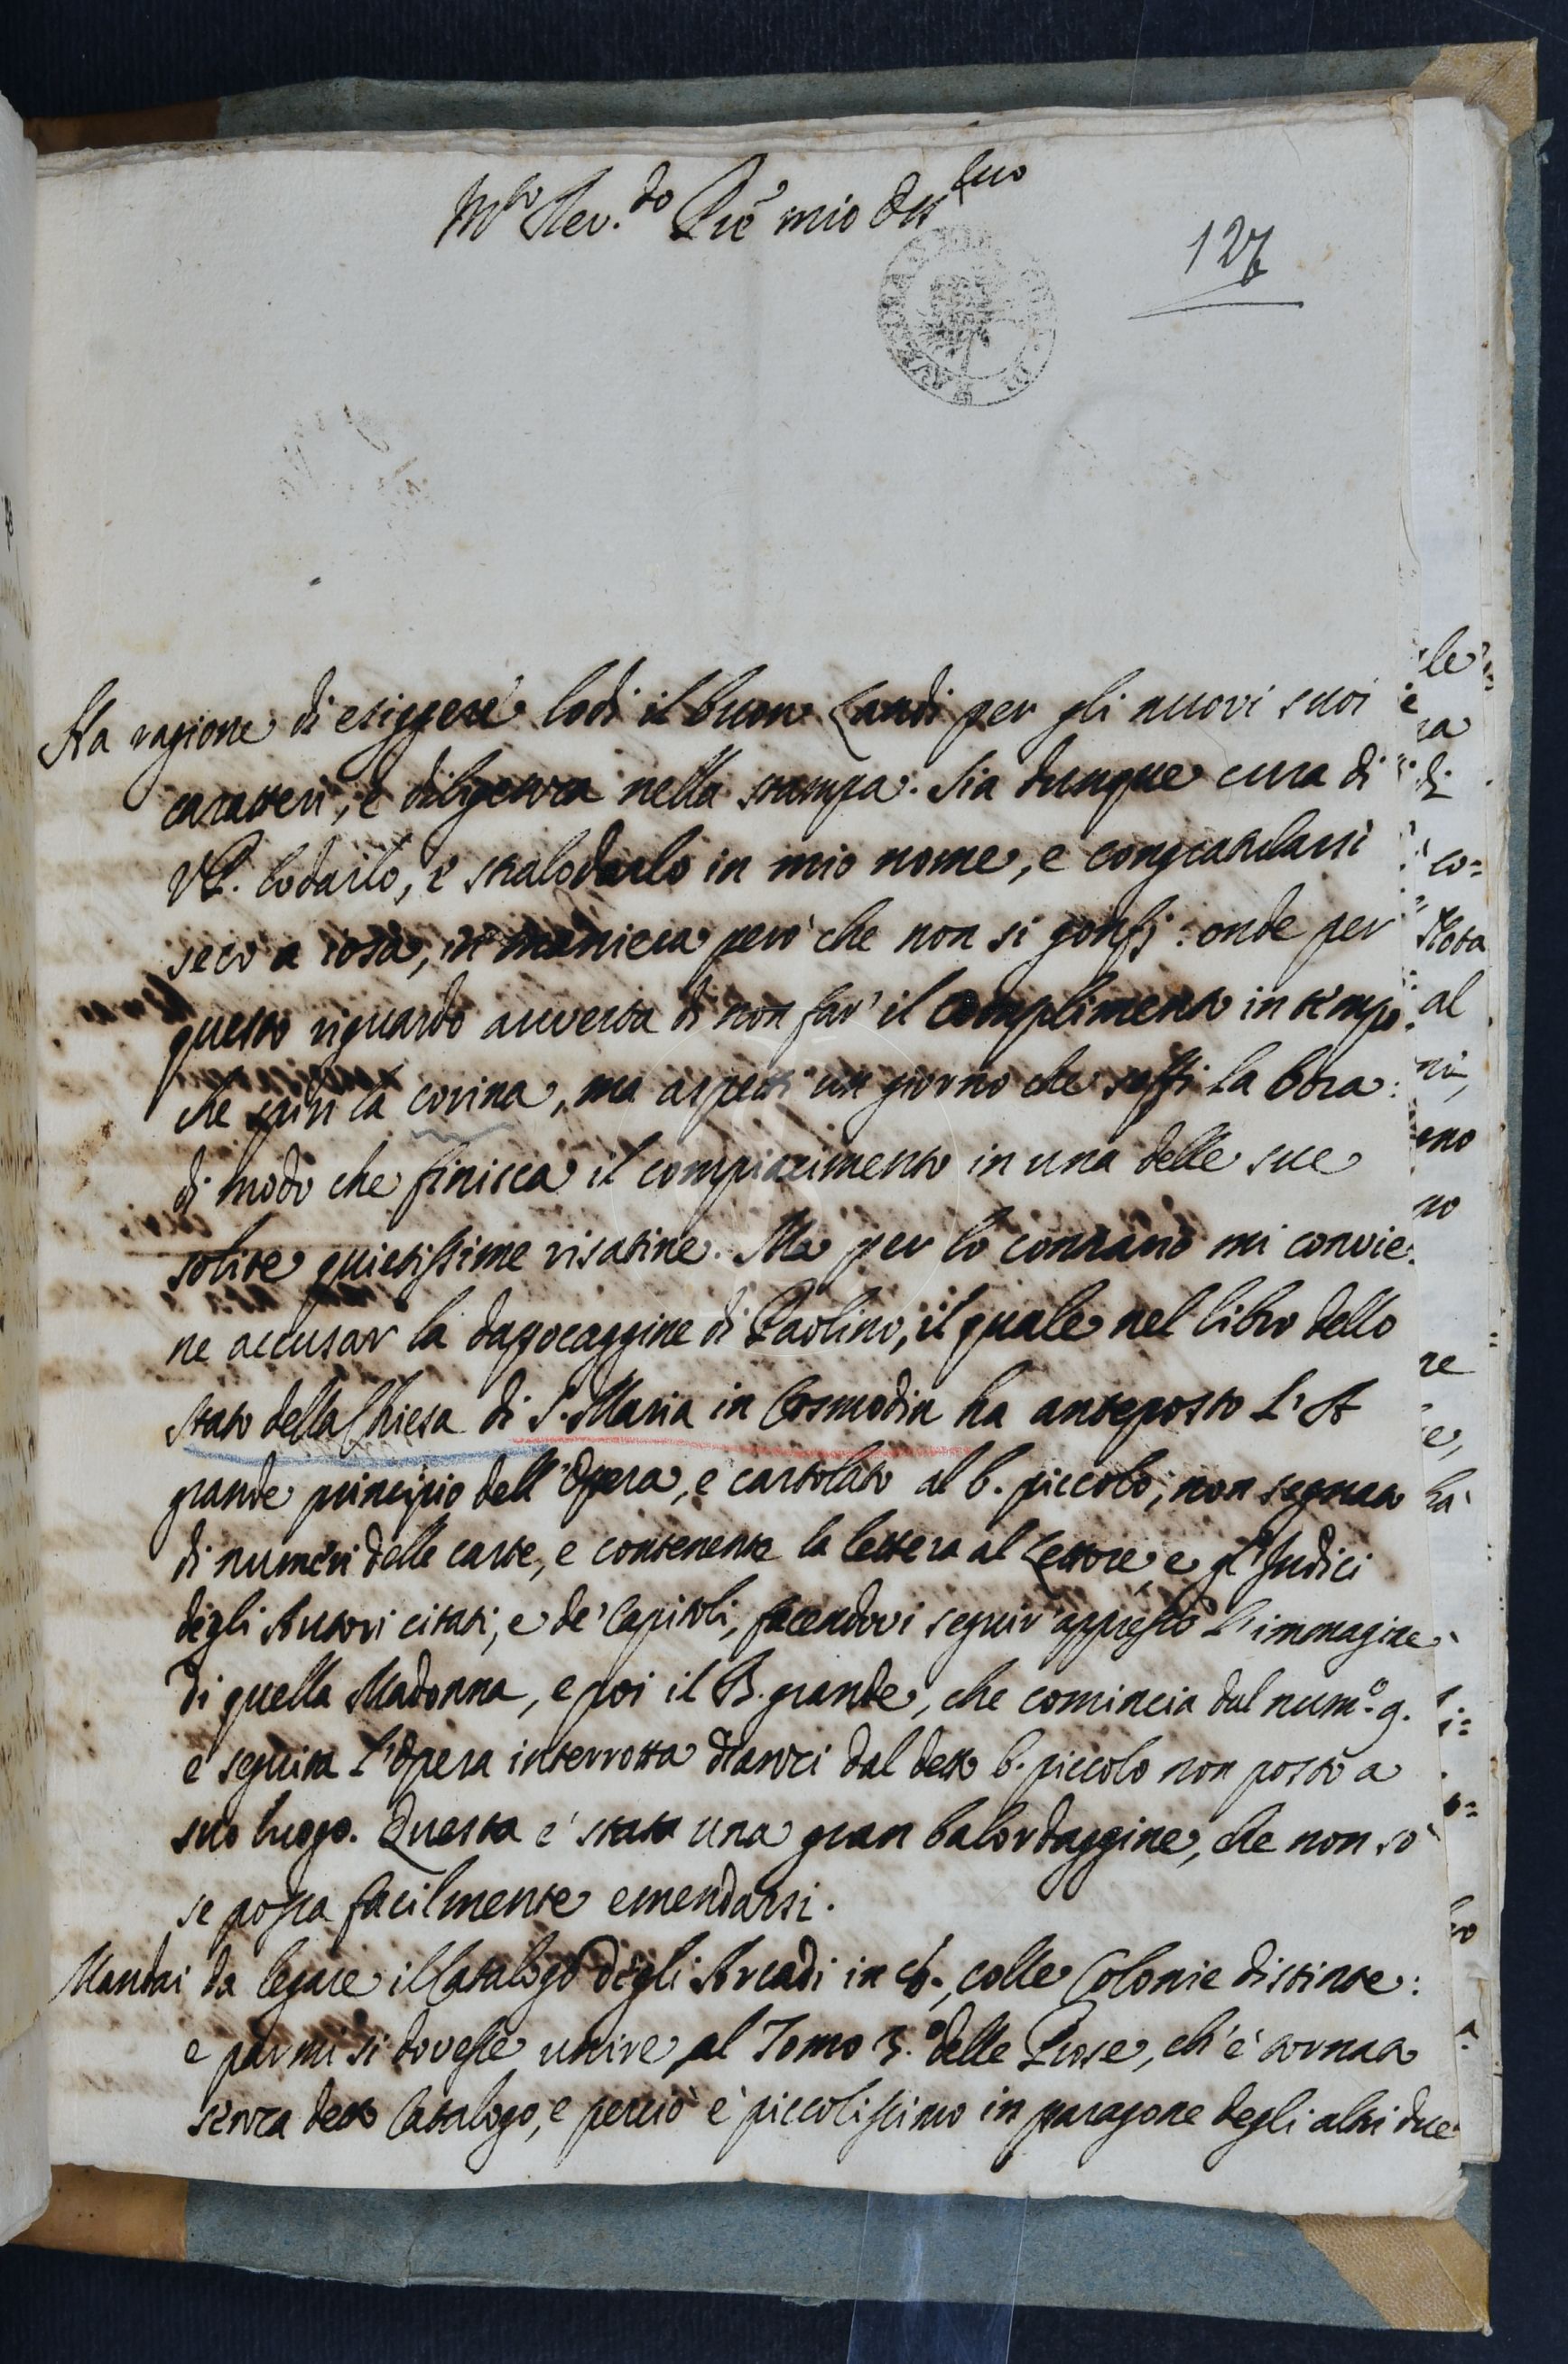 M.to Rev.do Prẽ mio Oss.mo
127
Ha ragione di esiggere lodi il buon Landi per gli nuovi suoi
caratteri, e diligenza nella stampa. Sia dunque cura di
V.P. lodarlo, e stralodarlo in mio nome, e congratularsi
seco a iosa, in maniera però che non si gonfj: onde per
questo riguardo avverta di non far' il complimento in tempo
che spiri la corina, ma aspetti un giorno che soffi la bora:
di modo che finisca il compiacimento in una delle sue
solite quietissime risatine. Ma per lo contrario mi convie
ne accusar la dappocaggine di Paolino, il quale nel libro dello
Stato della Chiesa di S. Maria in Cosmodin ha anteposto l'A
grande principio dell'Opera, e cartolato al b. piccolo, non segnato
di numeri delle carte, e contenente la lettera al Lettore, e gl'Indici
degli Autori citati, e de' Capitoli, facendovi seguir' appresso l'immagine
di quella Madonna, e poi il B. grande, che comincia dal num.o 9.
e seguita l'Opera interrotta dianzi dal detto b. piccolo non posto a
suo luogo. Questa è stata una gran balordaggine, che non sò
se possa facilmente emendarsi.
Mandai da legare il Catalogo degli Arcadi in 4.o, colle Colonie distinte:
e parmi si dovesse unire al Tomo 3.o delle Prose, ch'è tornato
senza detto Catalogo, e perciò è piccolissimo in paragone degli altri due